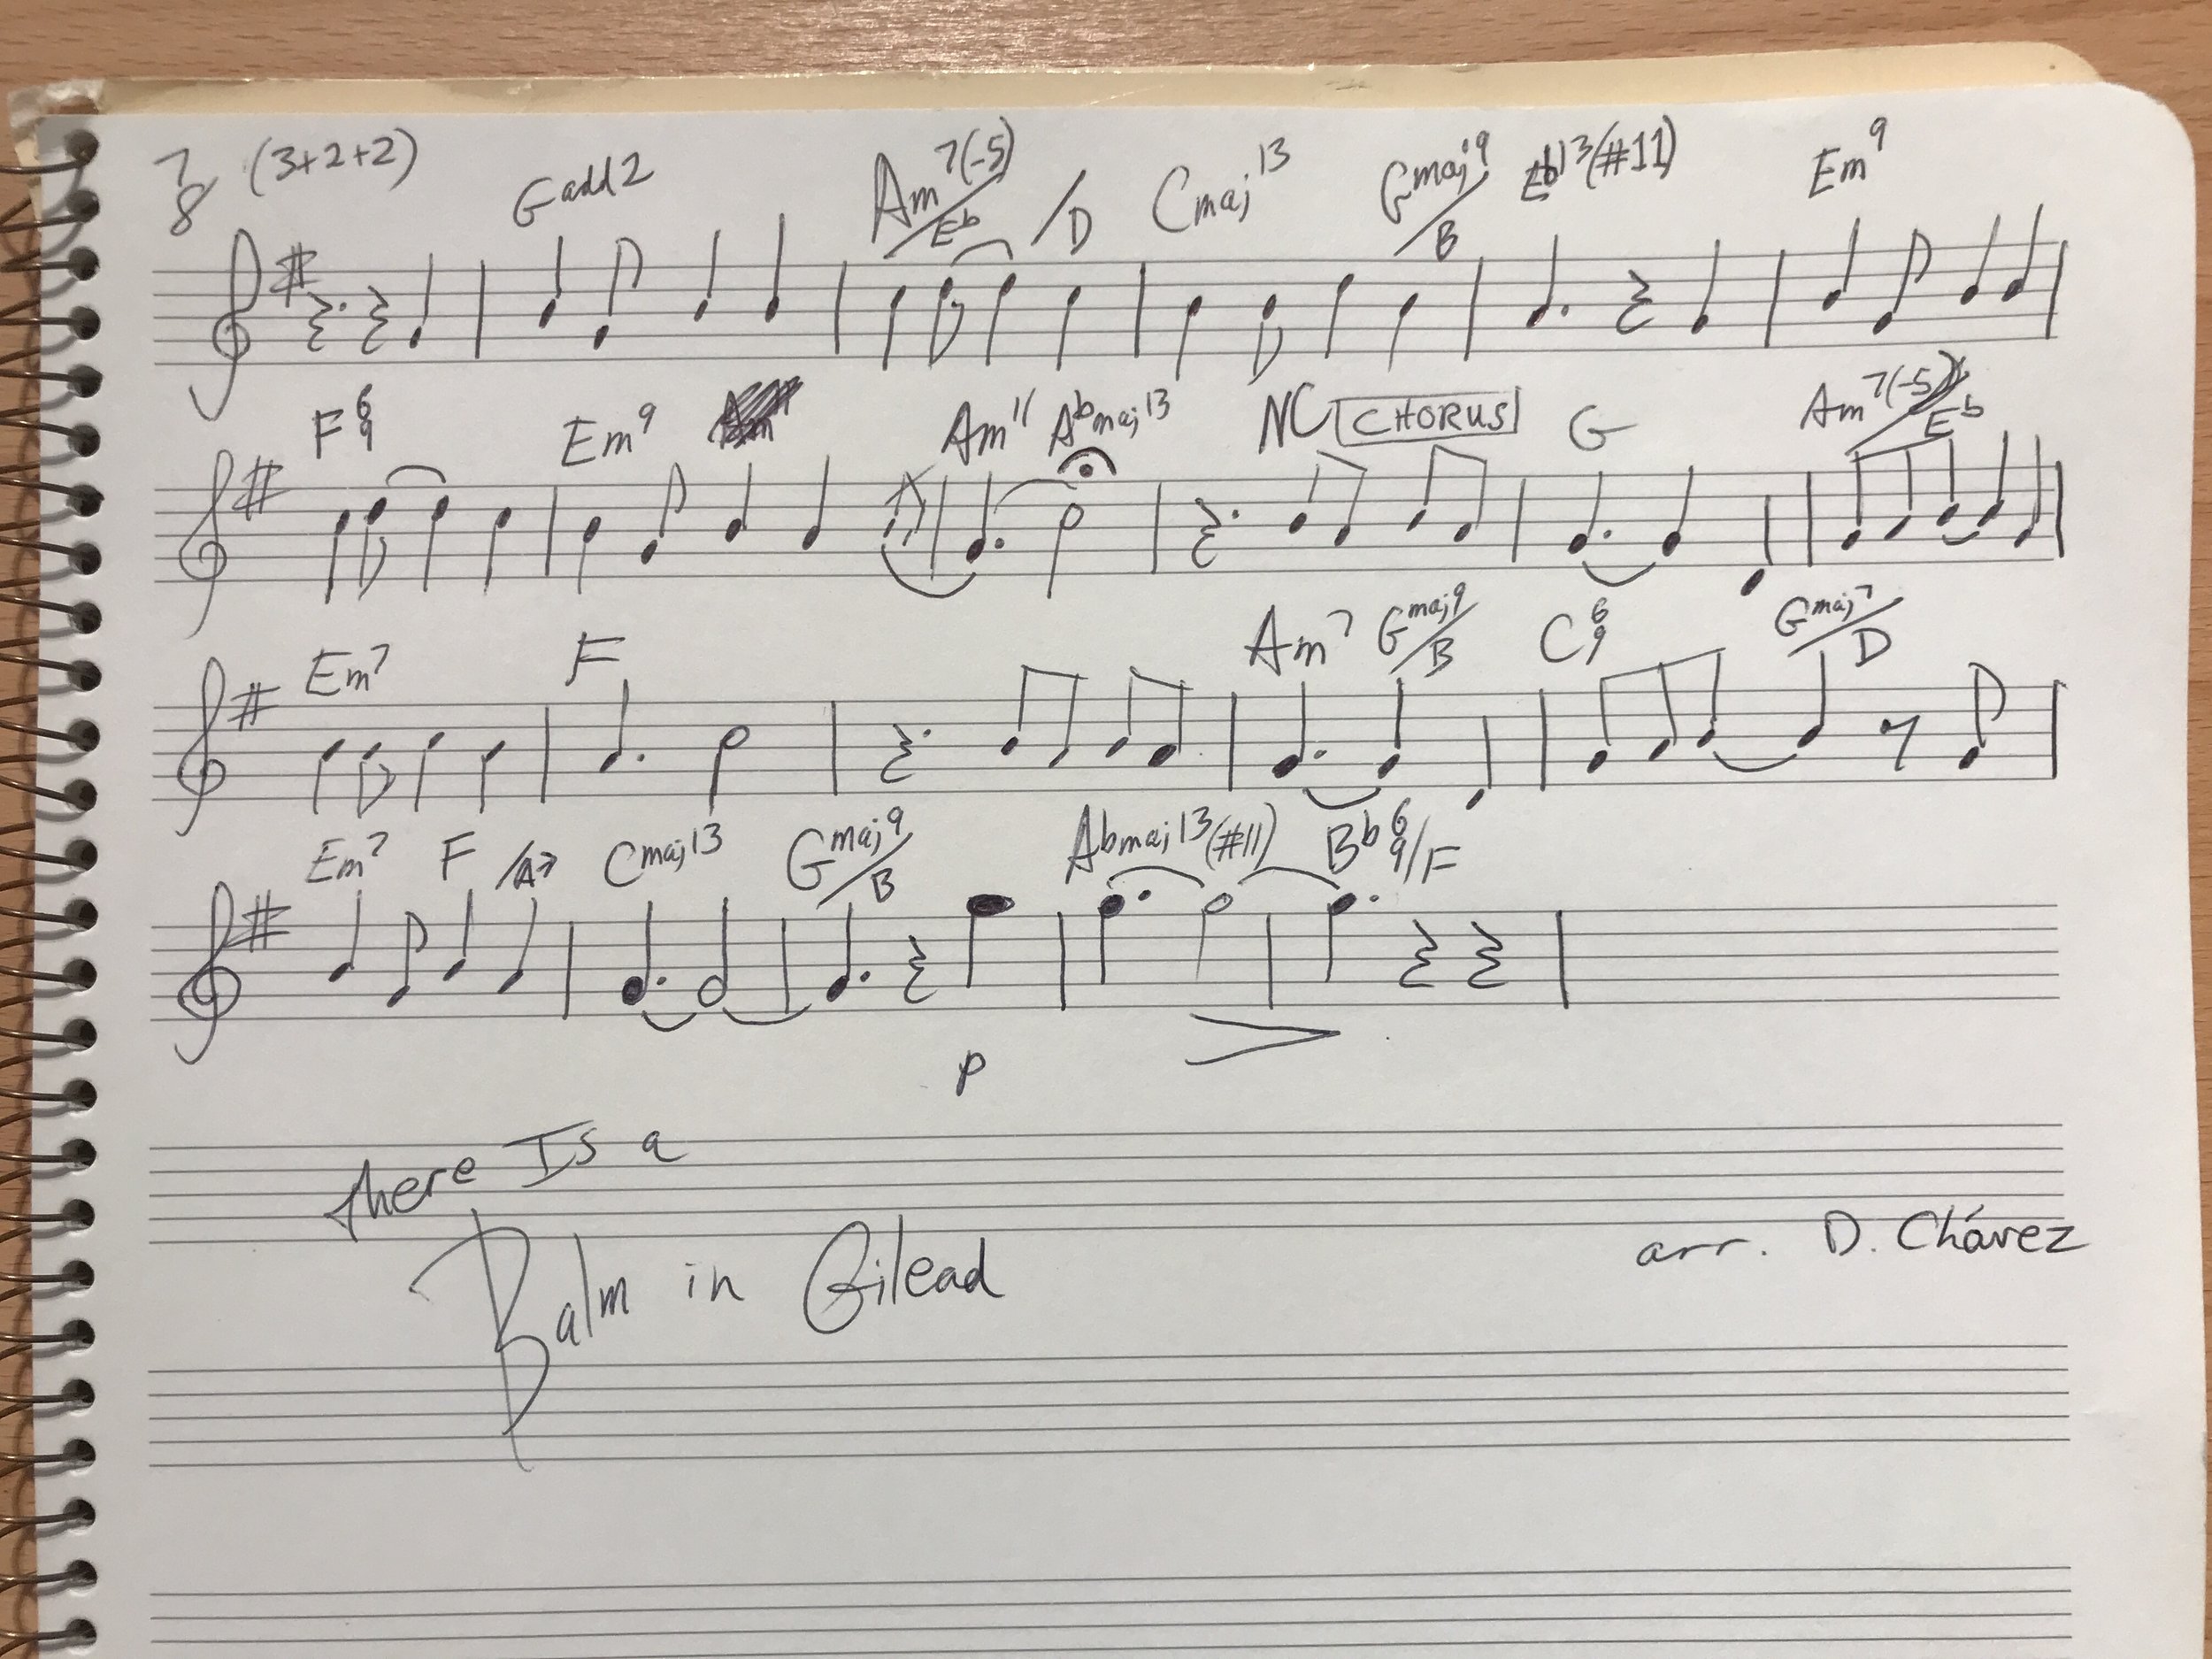 7/8 (3+2+2) Gadd2 Am7(-5)/Eb /D Cmaj13 Gmaj9/B Eb13(#11) Em9
F6/9 Em9 Am11 Abmaj13 NC CHORUS G Am7(-5)/Eb
Em7 F Am7 Gmaj9/B C6/9 Gmaj7/D
Em7 F Cmaj13 Gmaj9/B Abmaj13(#11) Bb6/9/F
p
there Is a
Balm in Gilead
arr. D. Chávez